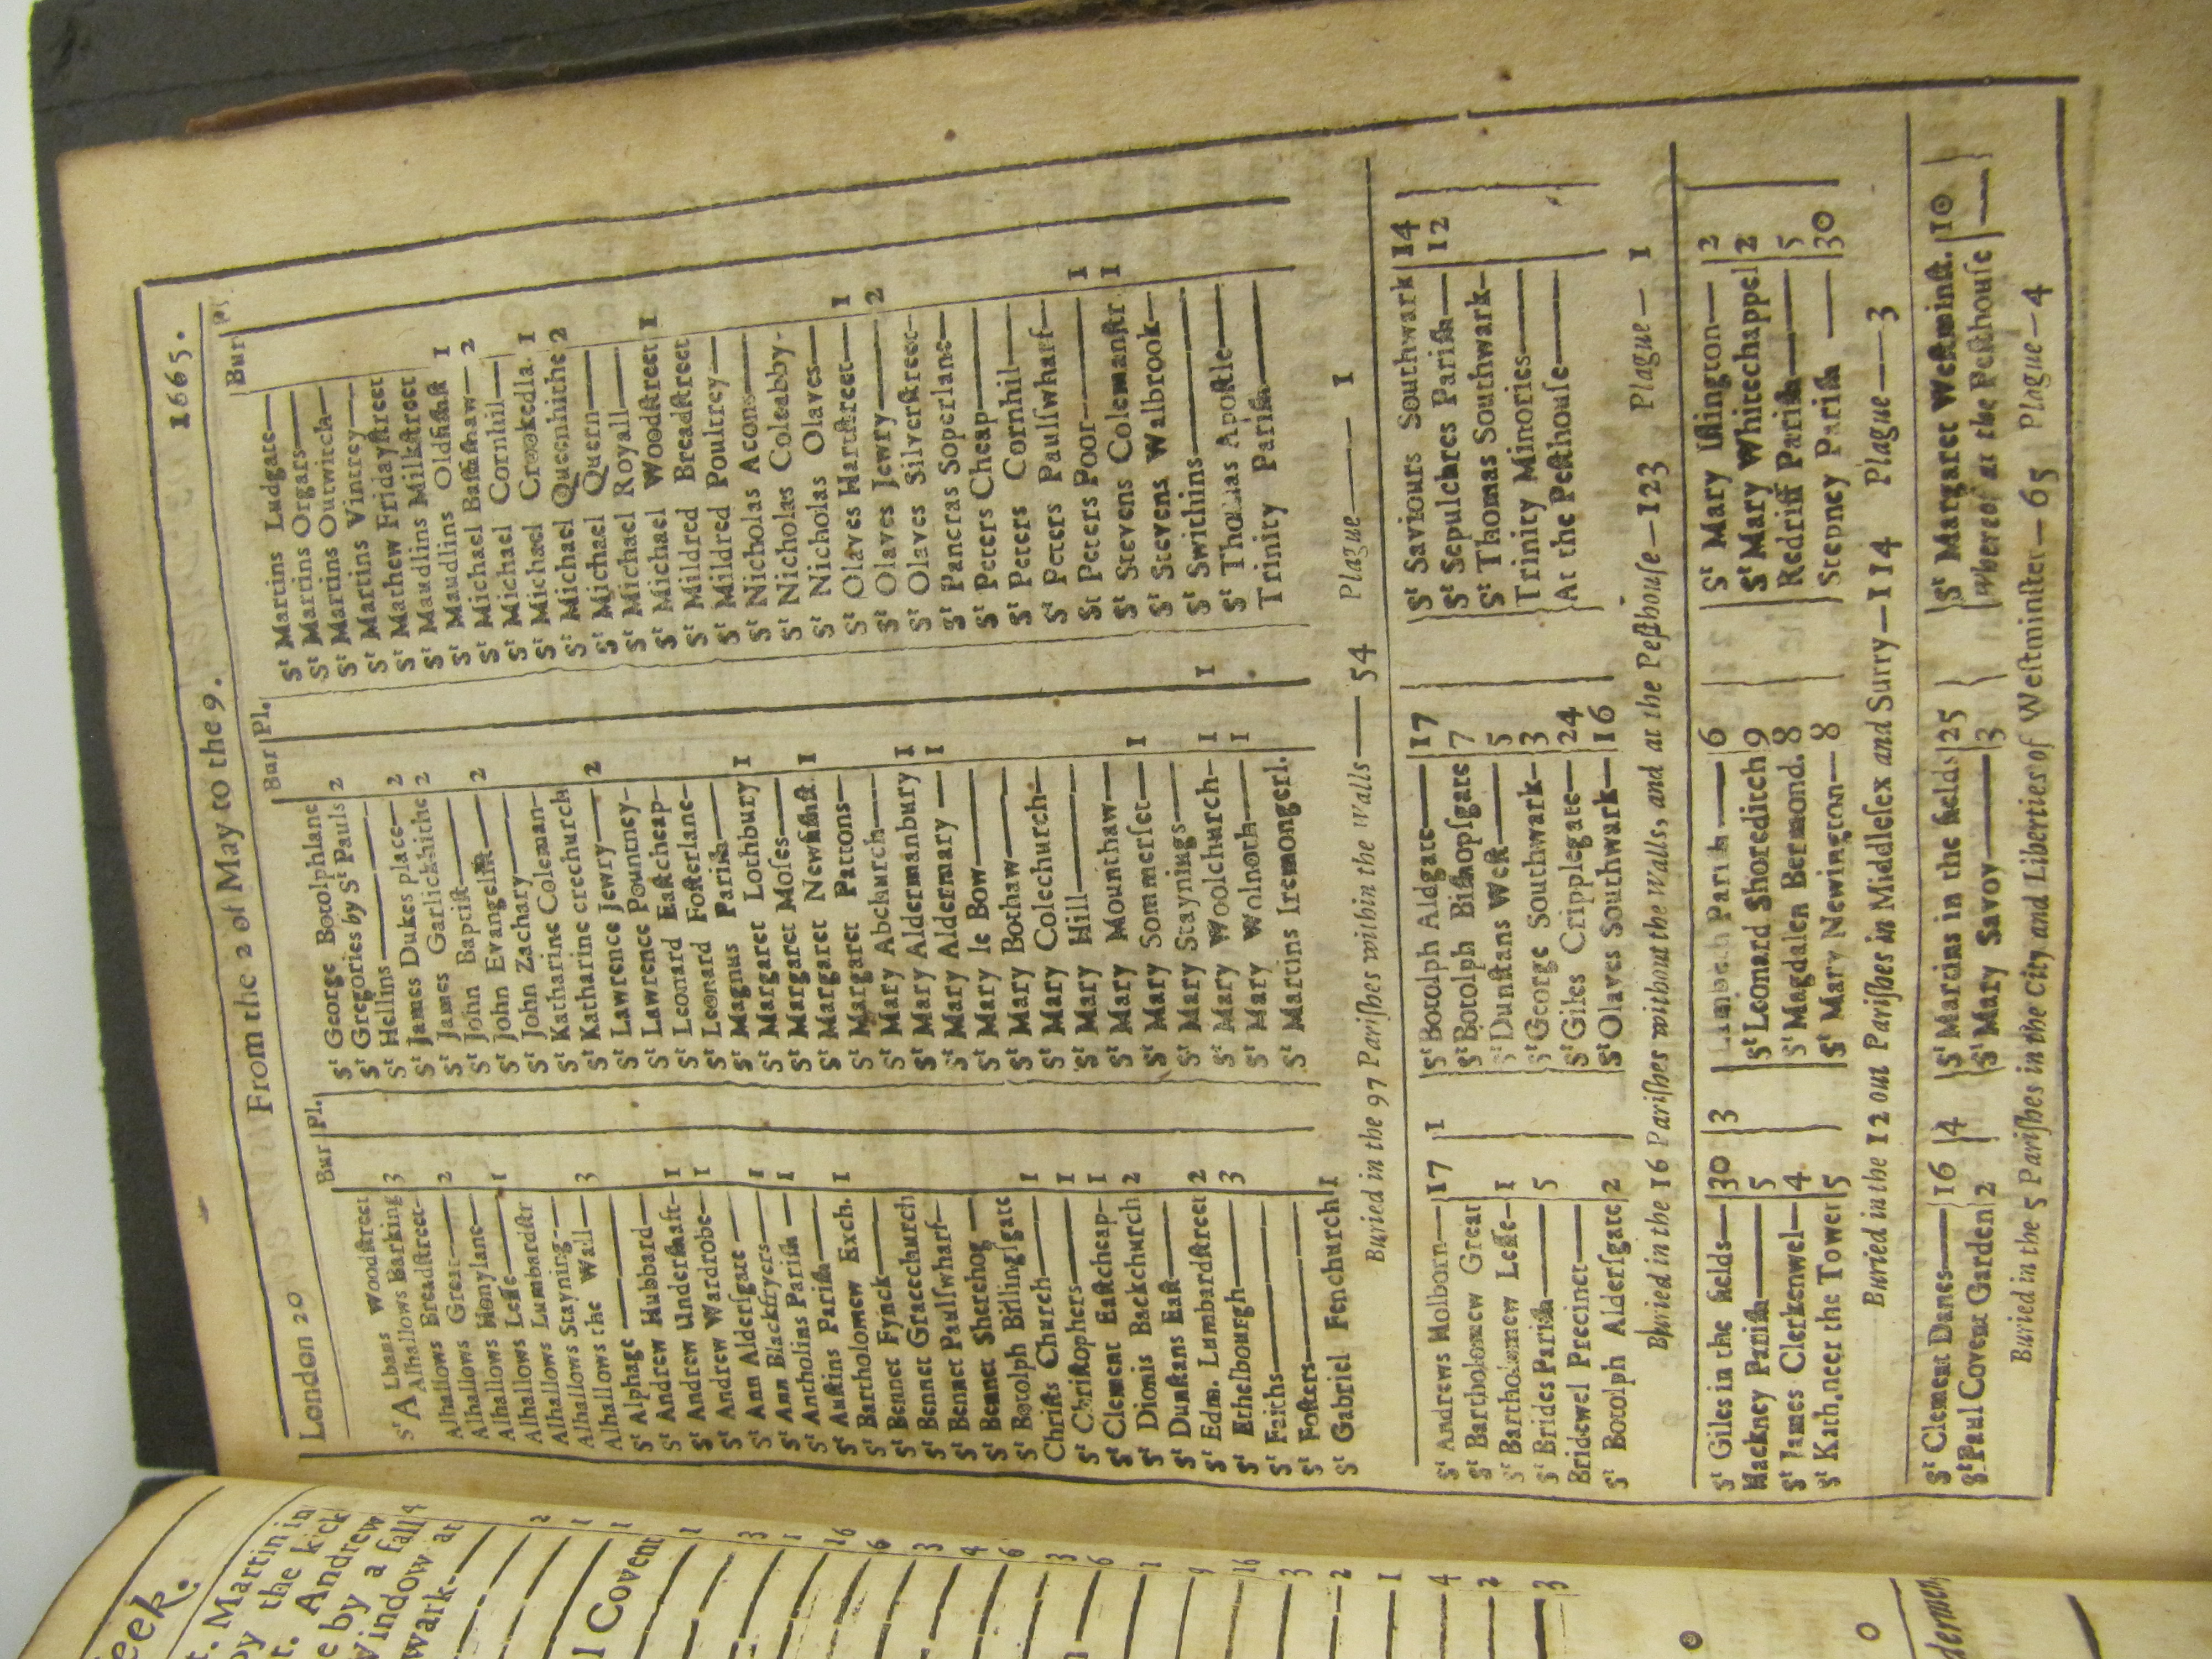 London 20 From the 2 of May to the 9. 1665.
Bur Pl.
St A Lbans Woodstreet
St Alhallows Barking 3
Alhallows Breadstreet
Alhallows Great 2
Alhallows Honylane
Alhallows Lesse 1
Alhallows Lumbardstr
Alhallows Stayning
Alhallows the Wall 3
St Alphage
St Andrew Hubbard
St Andrew Undershaft 1
St Andrew Wardrobe 1
St Ann Aldersgate
St Ann Blackfryers 1
St Antholins Parish 1
St Austins Parish
St Bartholomew Exch. 1
St Bennet Fynck
St Bennet Gracechurch
St Bennet Paulswharf
St Bennet Sherehog
St Botolph Billingsgate
Christs Church 1
St Christophers 1
St Clement Eastcheap 1
St Dionis Backchurch 2
St Dunstans East
St Edm. Lumbardstreet 2
St Ethelbourgh 3
St Faiths
St Fosters
St Gabriel Fenchurch 1
Bur Pl.
St George Botolphlane
St Gregories by St Pauls 2
St Hellins
St James Dukes place 2
St James Garlickhithe 2
St John Baptist
St John Evangelist 2
St John Zachary
St Katharine Coleman
St Katharine crechurch
St Lawrence Jewry 2
St Lawrence Pountney
St Leonard Eastcheap
St Leonard Fosterlane
St Magnus Parish
St Margaret Lothbury 1
St Margaret Moses
St Margaret Newfishst. 1
St Margaret Pattons
St Mary Abchurch
St Mary Aldermanbury 1
St Mary Aldermary 1
St Mary le Bow
St Mary Bothaw
St Mary Colechurch
St Mary Hill
St Mary Mounthaw
St Mary Sommerset 1
St Mary Staynings
St Mary Woolchurch 1 1
St Mary Wolnoth 1
St Martins Iremongerl.
Bur
St Martins Ludgate
St Martins Orgars
St Martins Outwitch
St Martins Vintrey
St Mathew Fridaystreet
St Maudlins Milkstreet
St Maudlins Oldfishst 1
St Michael Bassishaw 2
St Michael Cornhil
St Michael Crookedla. 1
St Michael Queenhithe 2
St Michael Quern
St Michael Royall
St Michael Woodstreet 1
St Mildred Breadstreet
St Mildred Poultrey
St Nicholas Acons
St Nicholas Coleabby
St Nicholas Olaves
St Olaves Hartstreet 1
St Olaves Jewry 2
St Olaves Silverstreet
St Pancras Soperlane
St Peters Cheap
St Peters Cornhil
St Peters Paulswharf
St Peters Poor 1
St Stevens Colemanstr 1
St Stevens Walbrook
St Swithins
St Thomas Apostle
Trinity Parish
Buried in the 97 Parishes within the Walls 54 Plague 1
St Andrews Holborn 17 1
St Bartholomew Great
St Bartholemew Lesse 1
St Brides Parish 5
Bridewel Precinct
St Botolph Aldersgate 2
St Botolph Aldgate 17
St Botolph Bishopsgate 7
St Dunstans West 5
St George Southwark 3
St Giles Cripplegate 24
St Olaves Southwark 16
St Saviours Southwark 14
St Sepulchres Parish 12
St Thomas Southwark
Trinity Minories
At the Pesthouse
Buried in the 16 Parishes without the Walls, and at the Pesthouse 123 Plague 1
St Giles in the fields 30 3
Hackney Parish 5
St James Clerkenwel 4
St Kath.neer the Tower 5
Lambeth Parish 6
St Leonard Shoreditch 9
St Magdalen Bermond. 8
St Mary Newington 8
St Mary Islington 2
St Mary Whitechappel 2
Redriff Parish 5
Stepney Parish 30
Buried in the 12 out Parishes in Middlesex and Surry 114 Plague 3
St Clement Danes 16 4
St Paul Covent Garden 2
St Martins in the fields 25
St Mary Savoy 3
St Margaret Westminst. 10
Whereof at the Pesthouse
Buried in the 5 Parishes in the City and Liberties of Westminster 65 Plague 4